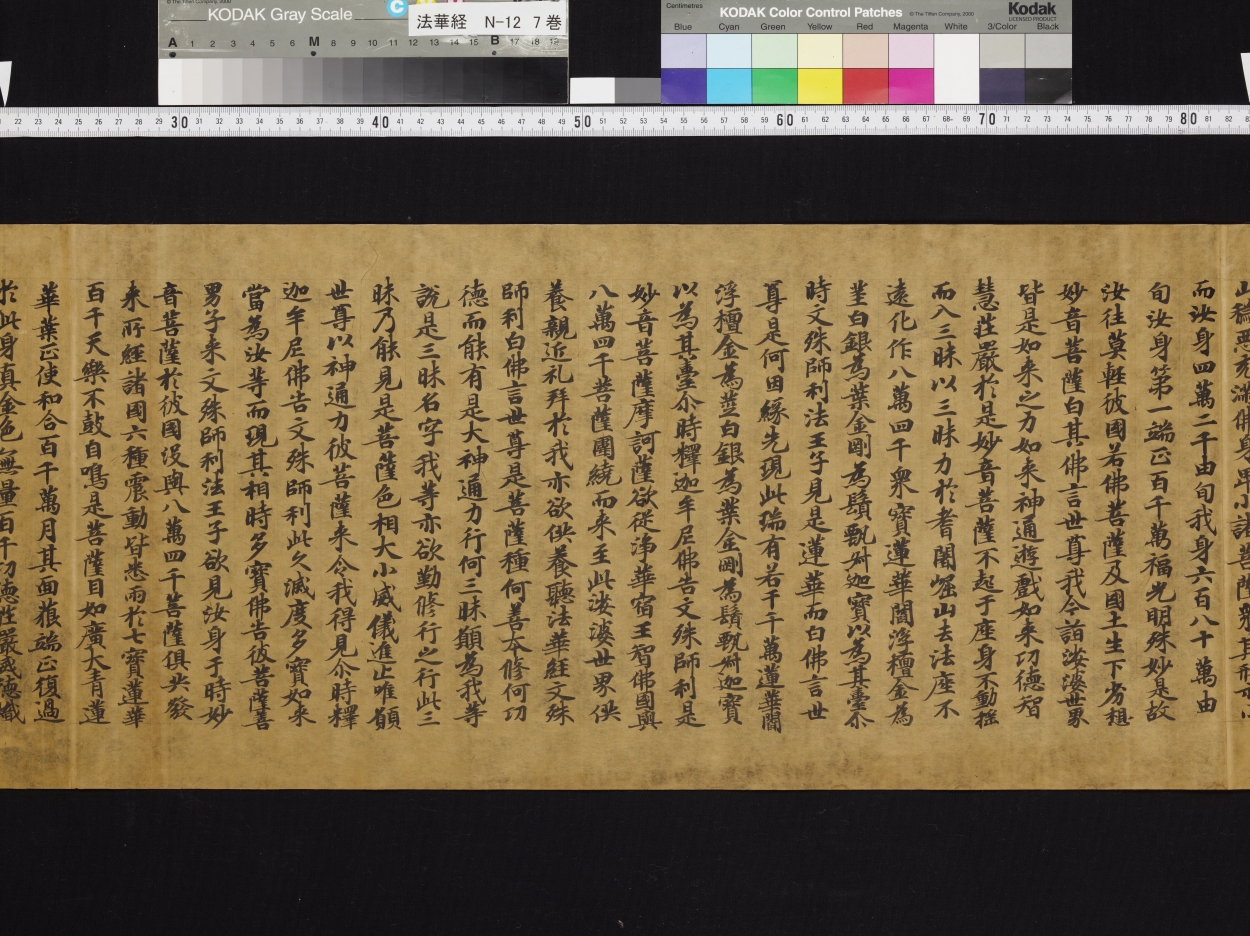 KODAK Gray Scale
法華経 N-12 7巻
KODAK Color Control Patches
Kodak
LICENSED PRODUCT
© The Tiffen Company, 2000
Centimetres
Blue Cyan Green Yellow Red Magenta White 3/Color Black
A 1 2 3 4 5 6 M 8 9 10 11 12 13 14 15 B 17 18 19
22 23 24 25 26 27 28 29 30 31 32 33 34 35 36 37 38 39 40 41 42 43 44 45 46 47 48 49 50 51 52 53 54 55 56 57 58 59 60 61 62 63 64 65 66 67 68 69 70 71 72 73 74 75 76 77 78 79 80 81 82
而汝身四萬二千由旬我身六百八十萬由
旬汝身第一端正百千萬福光明殊妙是故
汝往莫軽彼國若佛菩薩及國土生下劣想
妙音菩薩白其佛言世尊我今詣娑婆世界
皆是如来之力如来神通遊戲如来功德智
慧莊嚴於是妙音菩薩不起于座身不動揺
而入三昧以三昧力於耆闍崛山去法座不
遠化作八萬四千衆寶蓮華閻浮檀金為
莖白銀為葉金剛為鬚甄叔迦寶以為其臺尒
時文殊師利法王子見是蓮華而白佛言世
尊是何因緣先現此瑞有若干千萬蓮華閻
浮檀金為莖白銀為葉金剛為鬚甄叔迦寶
以為其臺尒時釋迦牟尼佛告文殊師利是
妙音菩薩摩訶薩欲從浄華宿王智佛國與
八萬四千菩薩圍繞而来至此娑婆世界供
養親近礼拜於我亦欲供養聽法華經文殊
師利白佛言世尊是菩薩種何善本修何功
德而能有是大神通力行何三昧願為我等
說是三昧名字我等亦欲勤修行之行此三
昧乃能見是菩薩色相大小威儀進止唯願
世尊以神通力彼菩薩来令我得見尒時釋
迦牟尼佛告文殊師利此久滅度多寶如来
當為汝等而現其相時多寶佛告彼菩薩善
男子来文殊師利法王子欲見汝身于時妙
音菩薩於彼國没與八萬四千菩薩俱共發
来所經諸國六種震動皆悉雨於七寶蓮華
百千天樂不鼓自鳴是菩薩目如廣大青蓮
華葉正使和合百千萬月其面猊端正復過
於此身真金色無量百千功德莊嚴威德熾